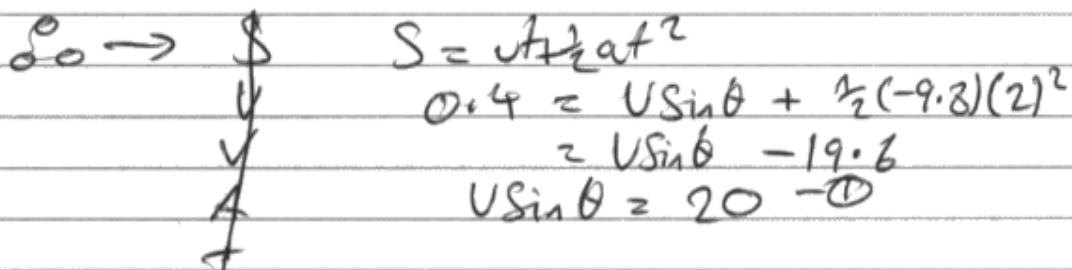 → S S = ut+½at²
U 0.4 = USinθ + ½(-9.8)(2)²
V = USinθ - 19.6
A USinθ = 20 - ①
T